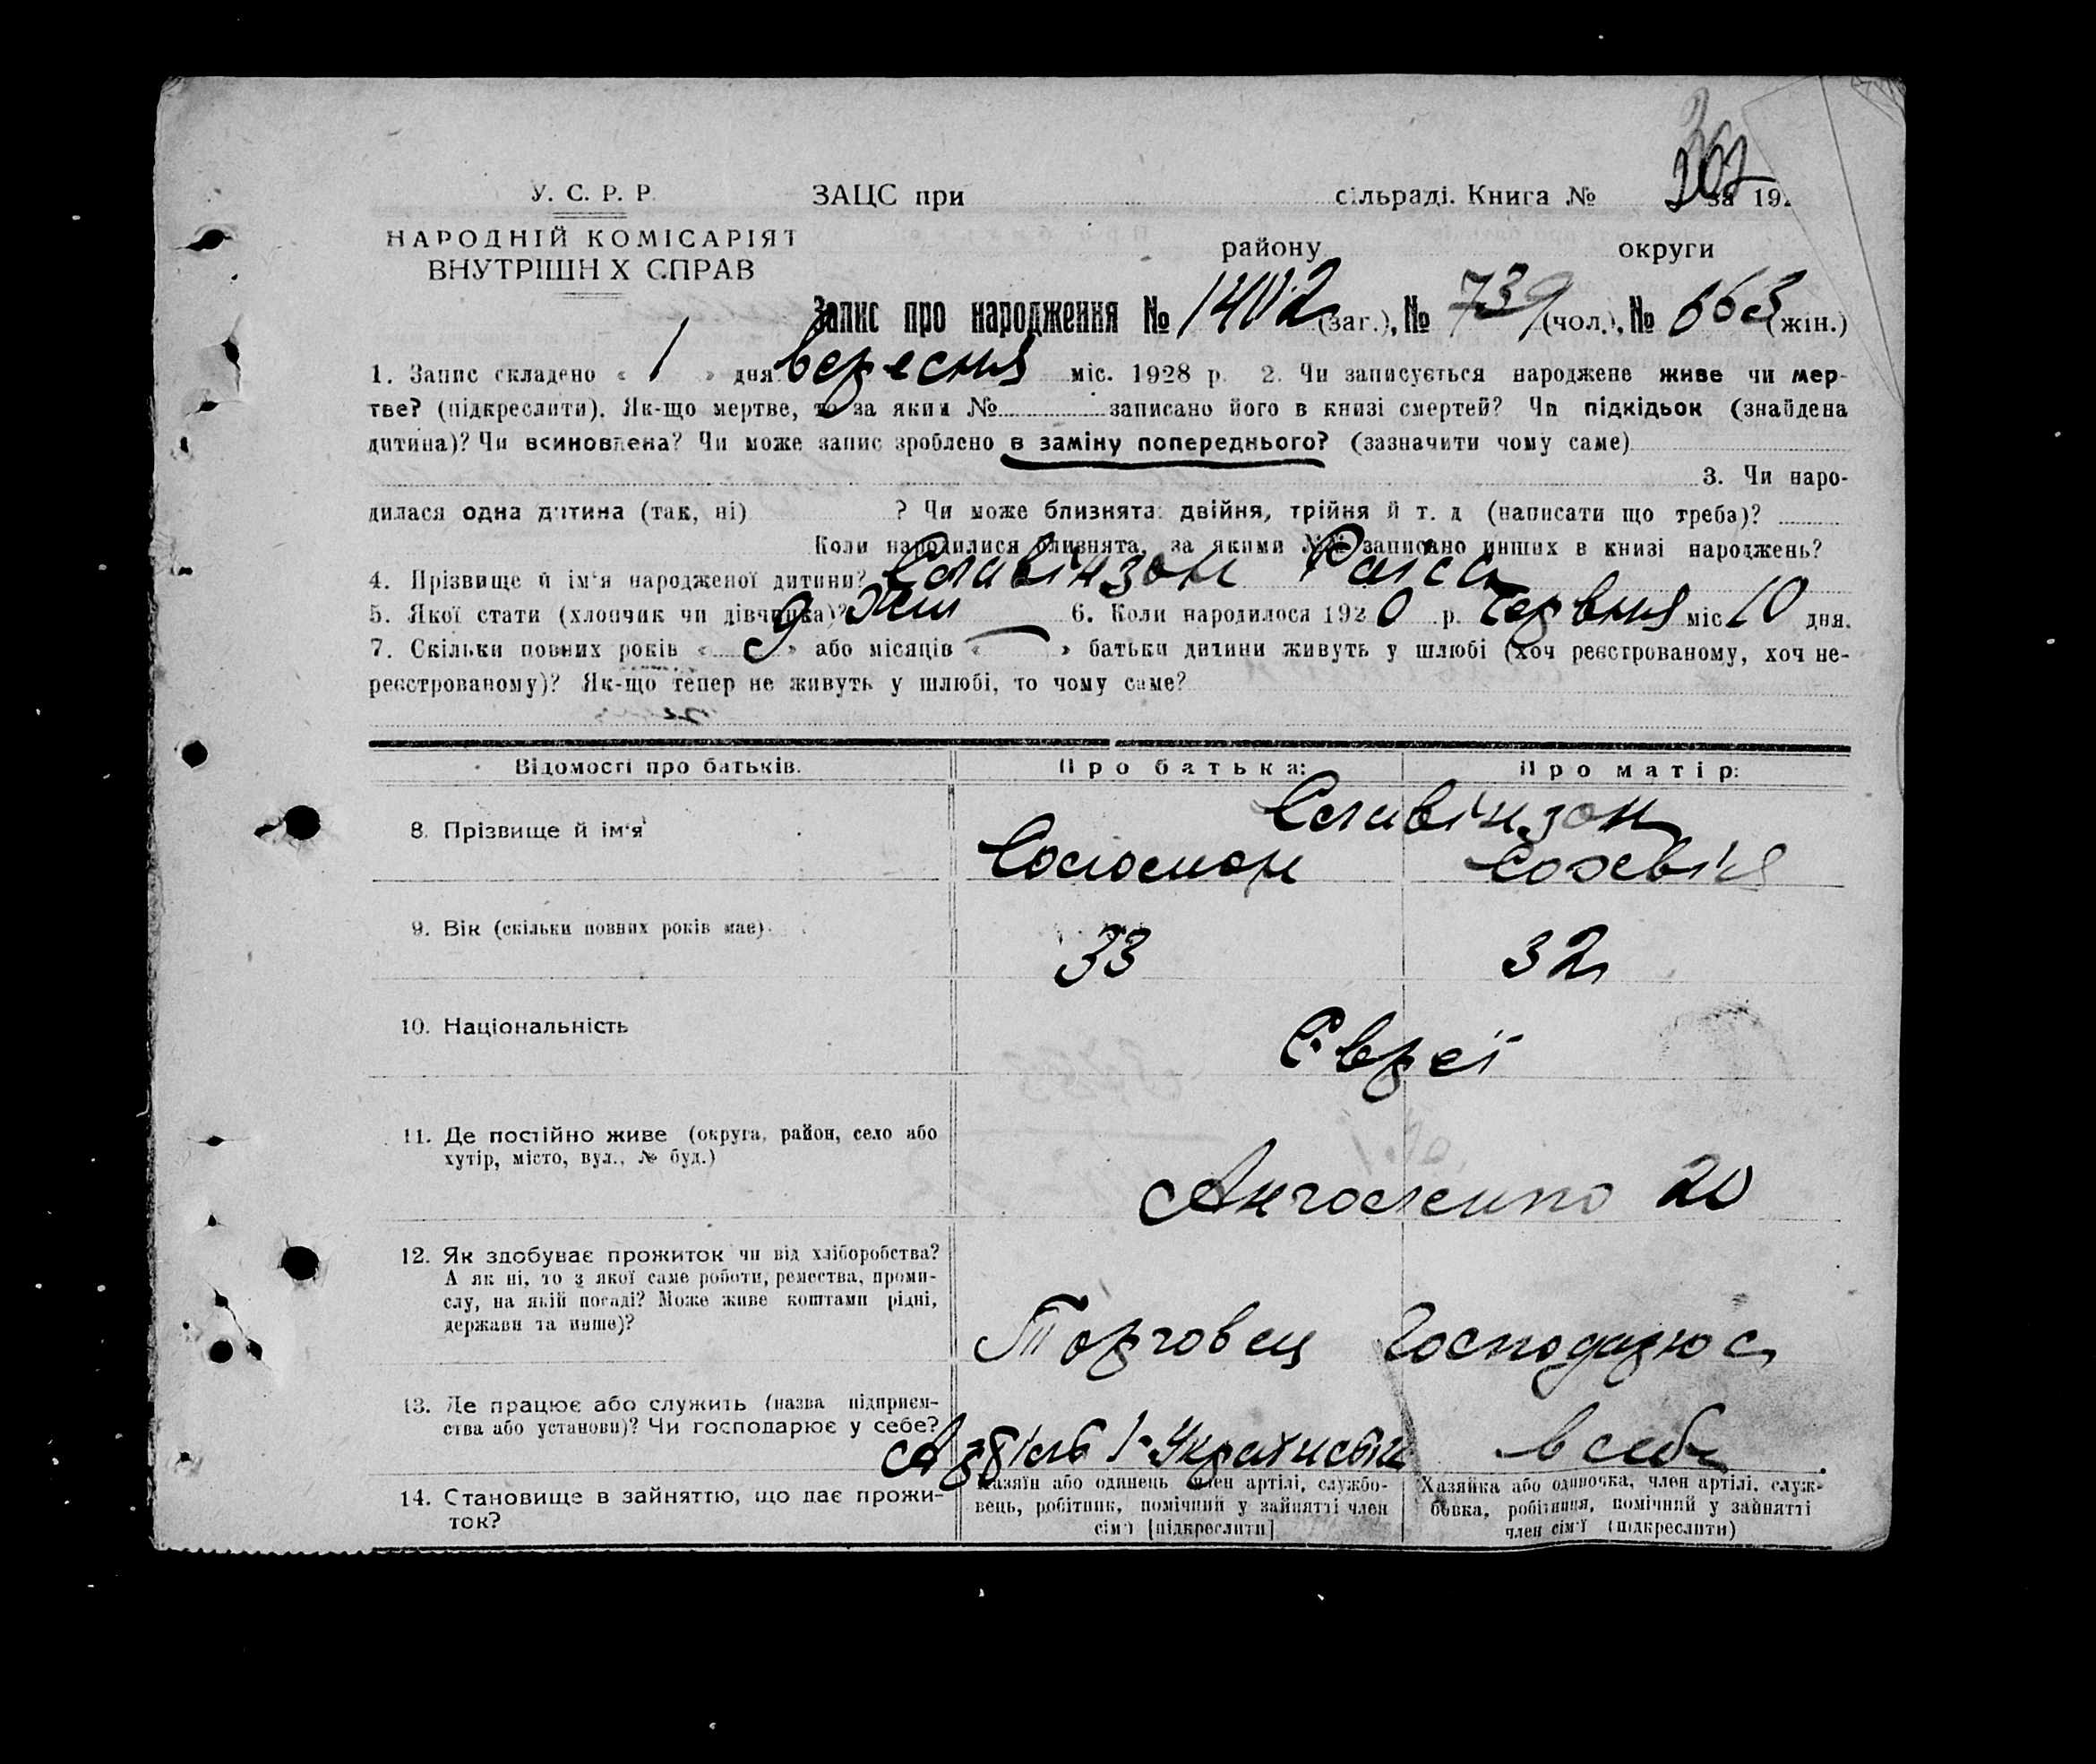 202
У. С. Р. Р. ЗАЦС при сільраді. Книга № за 192
НАРОДНІЙ КОМІСАРІЯТ
ВНУТРІШН Х СПРАВ
району округи
Запис про народження № 1402 (заг.), № 739 (чол.), № 663 (жін.)
1. Запис складено « 1 » дня вересня міс. 1928 р. 2. Чи записується народжене живе чи мер-
тве? (підкреслити). Як-що мертве, то за яким № записано його в книзі смертей? Чи підкідьок (знайдена
дитина)? Чи всиновлена? Чи може запис зроблено в заміну попереднього? (зазначити чому саме)
3. Чи наро-
дилася одна дитина (так, ні) ? Чи може близнята: двійня, трійня й т. д (написати що треба)?
Коли народилися близнята, за якими №№ записано инших в книзі народжень?
4. Прізвище й ім'я народженої дитини? Славінзон Раіса
5. Якої стати (хлопчик чи дівчинка)? жін 6. Коли народилося 1920 р. Червня міс 10 дня.
7. Скільки повних років « 9 » або місяців « — » батьки дитини живуть у шлюбі (хоч реєстрованому, хоч не-
реєстрованому)? Як-що тепер не живуть у шлюбі, то чому саме?
Відомості про батьків. Про батька: Про матір:
Славінзон
8. Прізвище й ім'я Соломон
9. Вік (скільки повних років має) 33 32
10. Національність Євреї
11. Де постійно живе (округа, район, село або
хутір, місто, вул., № буд.)
20
12. Як здобуває прожиток чи від хліборобства?
А як ні, то з якої саме роботи, ремества, проми-
слу, на якій посаді? Може живе коштами рідні,
держави та инше)?
Торговец Господарює
13. Де працює або служить (назва підприєм-
ства або установи)? Чи господарює у себе?
в себе
14. Становище в зайняттю, що дає прожи-
ток?
Хазяїн або одинець член артілі, службо-
вець, робітник, помічний у зайнятті член
сім'ї [підкреслити]
Хазяйка або одиночка, член артілі, служ-
бовка, робітниця, помічний у зайнятті
член сім'ї (підкреслити)